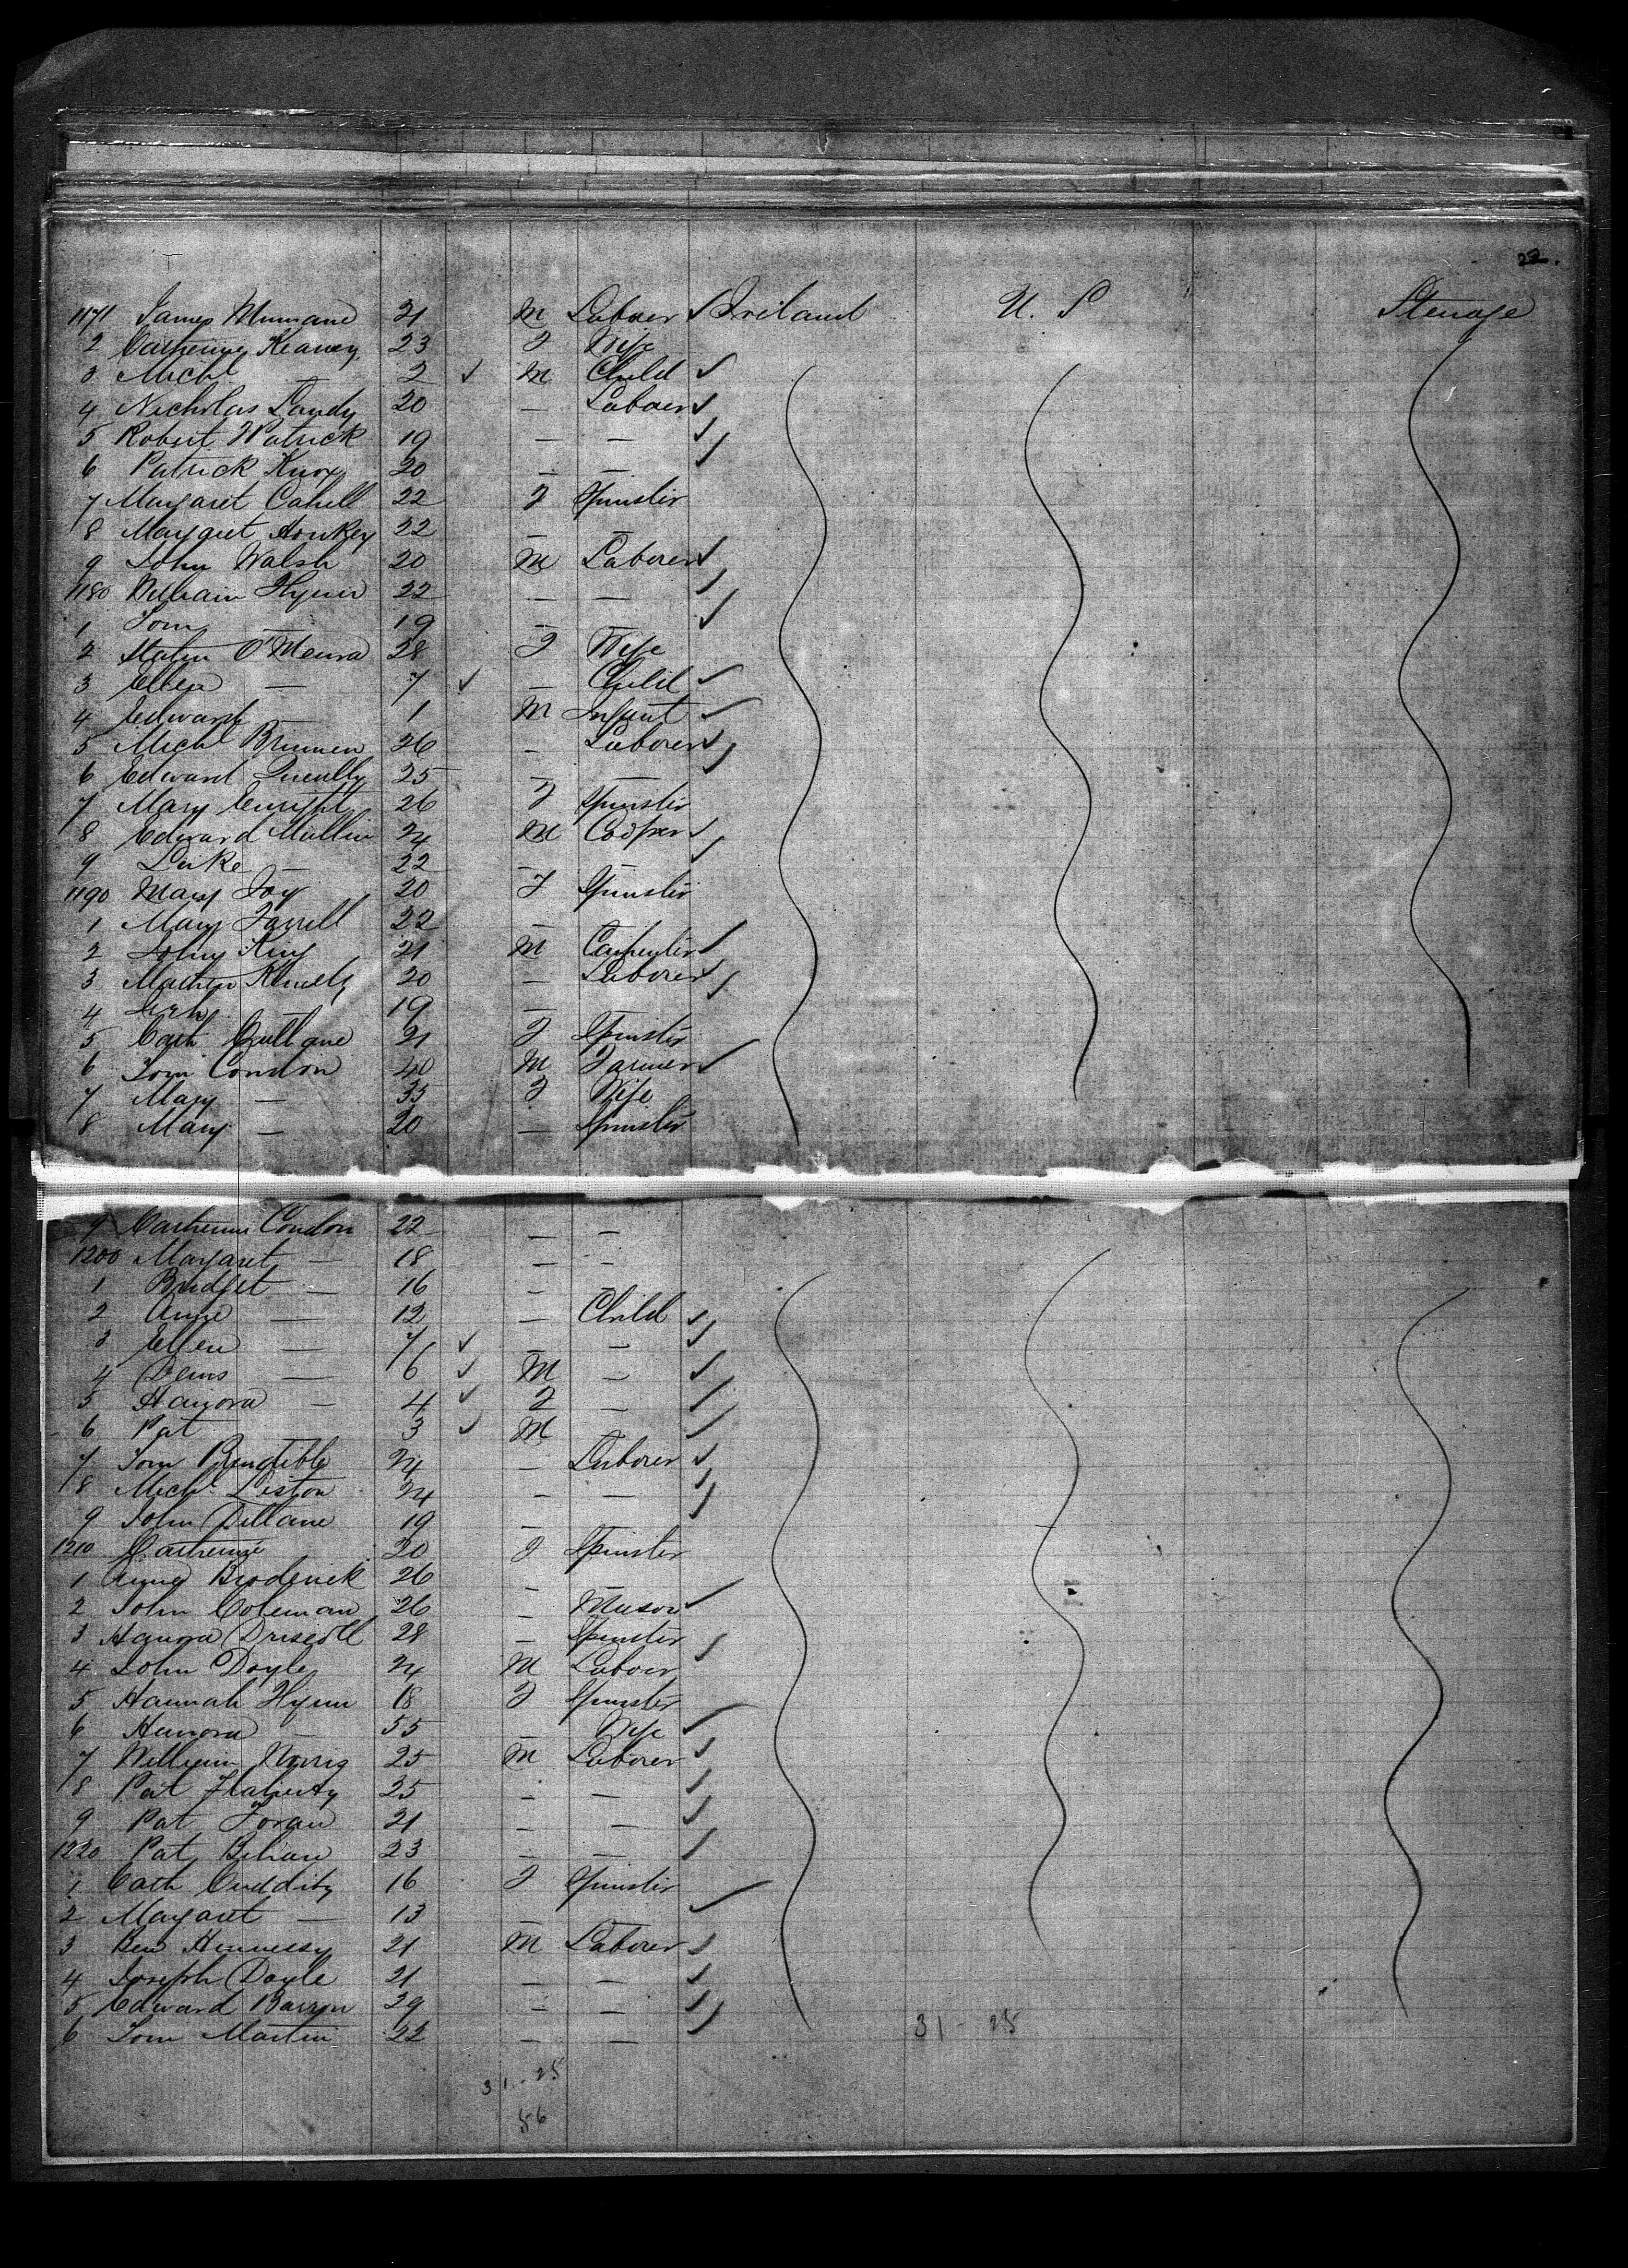 22.
1171 James Murnane 21 M Laborer Ireland U. S Steerage
2 Catherine Keaney 23 F Wife
3 Michl — 2 M Child
4 Nicholas Landy 20 — Laborer
5 Robert FPatrick 19 — —
6 Patrick Knox 20 — —
7 Margaret Cahell 22 F Spinster
8 Margaret 22 — —
9 John Walsh 20 M Laborer
1180 William Flynn 22 — —
1 Tom — 19 —
2 O'Meara 28 F Wife
3 Ellen — 7 — Child
4 Edward — 1 M Infant
5 Michl Brennen 26 — Laborer
6 Edward Queally 25 — —
7 Mary Enright 26 F Spinster
8 Edward Mullin 24 M Cooper
9 Luke — 22 — —
1190 Mary Joy 20 F Spinster
1 Mary Farrell 22 — —
2 John King 21 M Carpenter
3 Mathew Kennelly 20 — Laborer
4 — 19 —
5 Cath Cullane 21 F Spinster
6 Tom Condon 40 M Farmer
7 Mary — 35 F Wife
8 Mary — 20 — Spinster
9 Catherine Condon 22 — —
1200 Margaret — 18 — —
1 Bridget — 16 — —
2 Anne — 12 — Child
3 Ellen — 7 — —
4 Denis — 6 M —
5 Hanora — 4 F —
6 Pat 3 M
7 Tom 24 — Laborer
8 Michl Liston 24 — —
9 John Dillane 19 —
1210 Catherine 20 F Spinster
1 Anne Broderick 26 — —
2 John Coleman 26 — Mason
3 Hanora Driscoll 28 — Spinster
4 John Doyle 24 M Laboer
5 Hannah Flynn 18 F Spinster
6 Hannora — 55 — Wife
7 William Norris 25 M Laborer
8 Pat Flaherty 25 — —
9 Pat Foran 21 — —
1220 Pat Behan 23 — —
1 Cath Cuddity 16 F Spinster
2 Margaret — 13 — —
3 Ben Hennessy 21 M Laborer
4 Joseph Doyle 21 — —
5 Edward Barron 29 — —
6 Tom Martin 22 — —
31 - 25
31 - 25
56